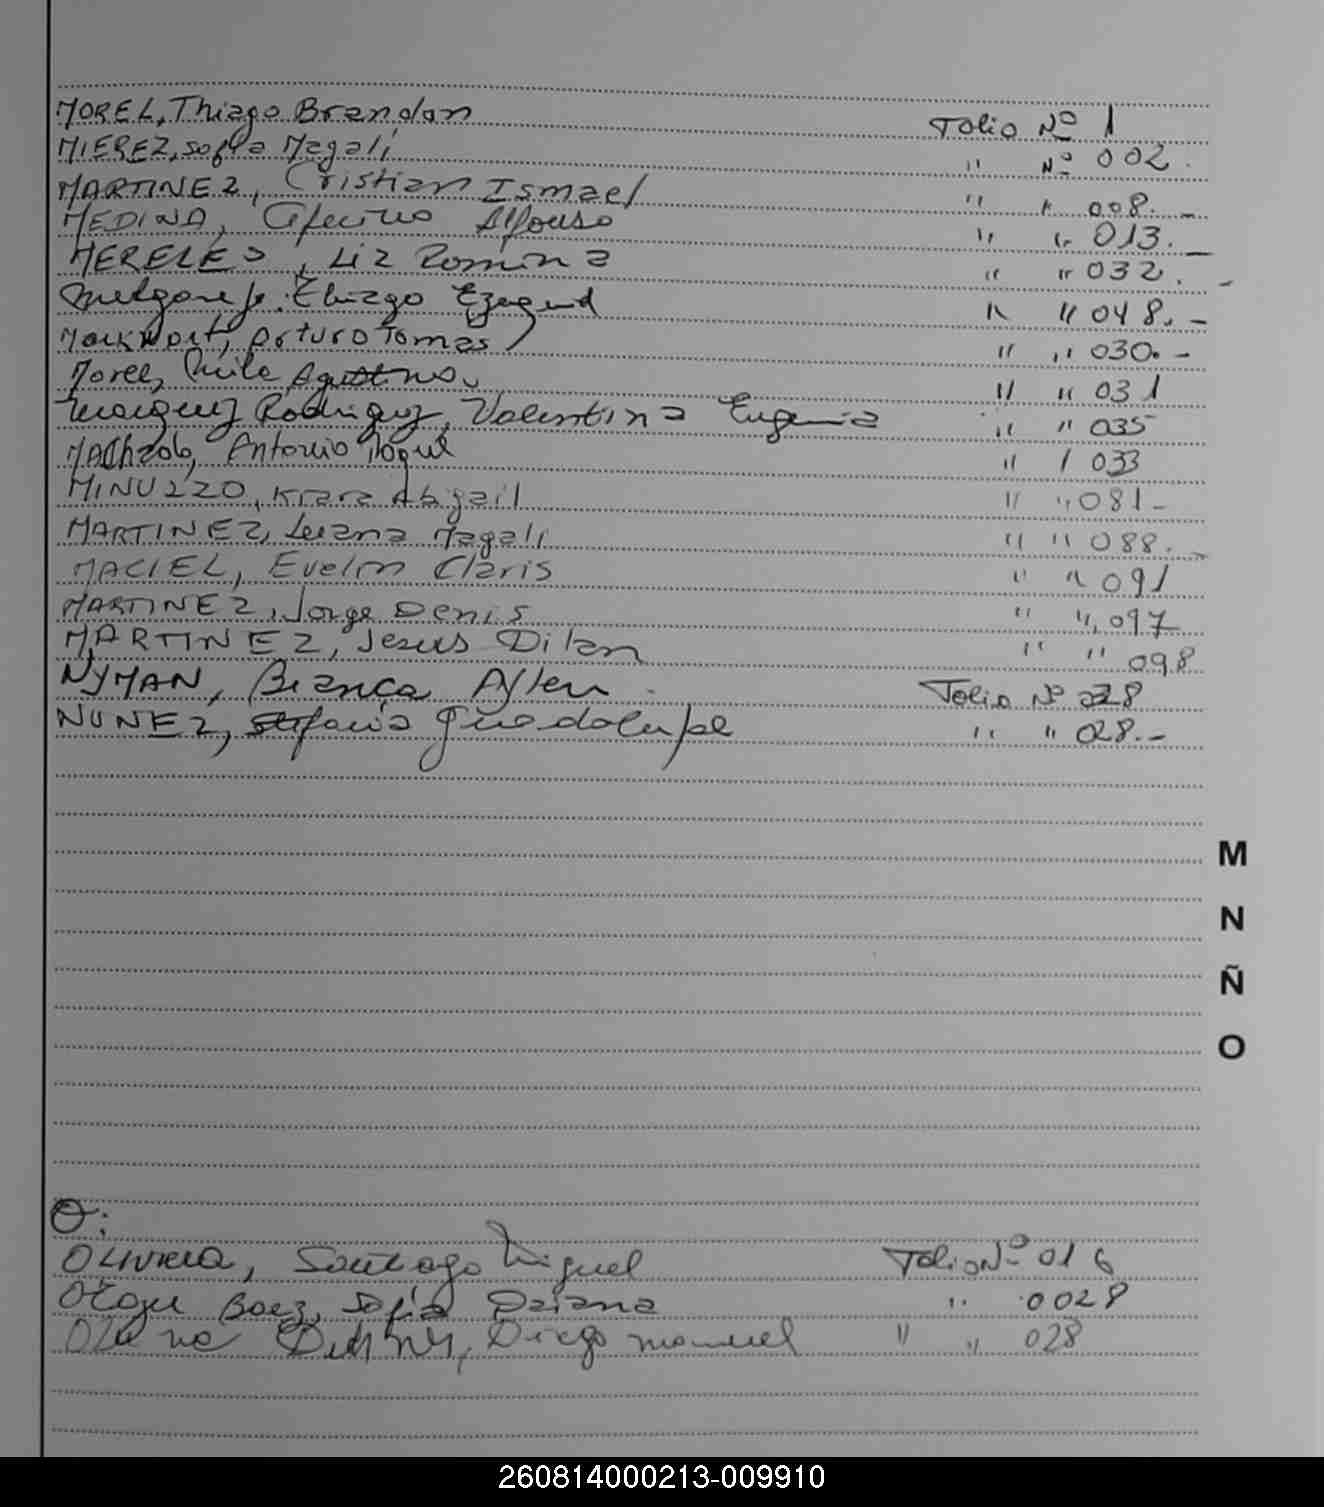 MOREL, Thiago Brandon Folio Nº 1
MIEREZ, Sofia Magalí " Nº 002.
MARTINEZ, Cristian Ismael " " 008.-
MEDINA, Alfonso " " 013.-
MERELES, Liz Romina " " 032.-
Melgarejo Thiago Ezequiel " " 048.-
Markwort, Arturo Tomas " " 030.-
Morel, Agustina " " 031
Marquez Rodriguez, Valentina Eugenia " " 035
MAChado, Antonio " " 033
MINUZZO, Kiara Abigail " " 081-
MARTINEZ, Luana Magali " " 088.-
MACIEL, Evelin Claris " " 091
MARTINEZ, Jorge Denis " " 097
MARTINEZ, Jesus Dilan " " 098
NYMAN, Bianca Aylen Folio Nº
NUNEZ, Stefania Guadalupe " " 028.-
M
N
Ñ
O
O:
OLIVIERA, Santiago Miguel Folio Nº 016
Baez, Sofia Daiana " 0028
Diego manuel " " 028
260814000213-009910